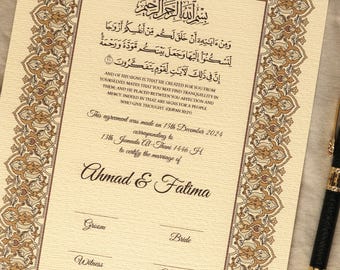 بسم الله الرحمن الرحيم
ومن ءايته أن خلق لكم من أنفسكم أزوجا
لتسكنوا إليها وجعل بينكم مودة ورحمة
إن في ذلك لآيات لقوم يتفكرون
AND OF HIS SIGNS IS THAT HE CREATED FOR YOU FROM
YOURSELVES MATES THAT YOU MAY FIND TRANQUILITY IN
THEM; AND HE PLACED BETWEEN YOU AFFECTION AND
MERCY. INDEED IN THAT ARE SIGNS FOR A PEOPLE
WHO GIVE THOUGHT. (QURAN 30:21)
This agreement was made on 15th December 2024
corresponding to
13th, Jumada Al-Thani 1446 H.
to certify the marriage of
Ahmad & Fatima
Groom Bride
Witness